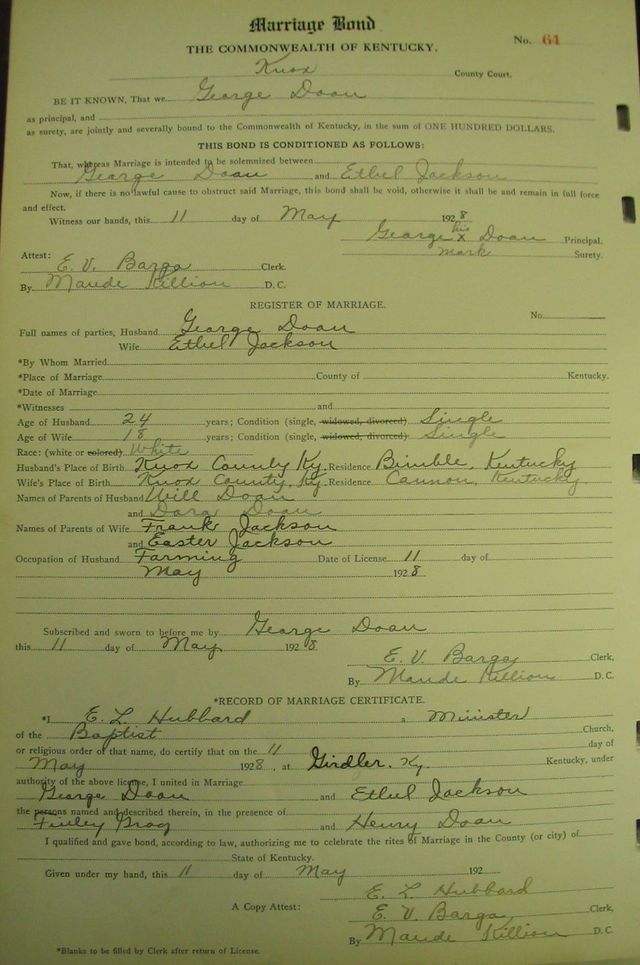 Marriage Bond
No. 61
THE COMMONWEALTH OF KENTUCKY.
Knox County Court.
BE IT KNOWN, That we George Doan
as principal, and
as surety, are jointly and severally bound to the Commonwealth of Kentucky, in the sum of ONE HUNDRED DOLLARS.
THIS BOND IS CONDITIONED AS FOLLOWS:
That, whereas Marriage is intended to be solemnized between
George Doan and Ethel Jackson
Now, if there is no lawful cause to obstruct said Marriage, this bond shall be void, otherwise it shall be and remain in full force
and effect.
Witness our hands, this 11 day of May 1928
George his X Doan Principal.
mark Surety.
Attest:
E. V. Barga Clerk.
By Maude Killion D. C.
REGISTER OF MARRIAGE.
No.
Full names of parties, Husband George Doan
Wife Ethel Jackson
*By Whom Married
*Place of Marriage County of Kentucky.
*Date of Marriage
*Witnesses and
Age of Husband 24 years; Condition (single, widowed, divorced) Single
Age of Wife 18 years; Condition (single, widowed, divorced) Single
Race: (white or colored) White
Husband's Place of Birth Knox County Ky. Residence Bimble, Kentucky
Wife's Place of Birth Knox County, Ky. Residence Cannon, Kentucky
Names of Parents of Husband Will Doan
and Dora Doan
Names of Parents of Wife Frank Jackson
and Easter Jackson
Occupation of Husband Farming Date of License 11 day of
May 1928
Subscribed and sworn to before me by George Doan
this 11 day of May 1928.
E. V. Barga Clerk,
By Maude Killion D. C.
*RECORD OF MARRIAGE CERTIFICATE.
*I E. L. Hubbard a Minister
of the Baptist Church,
or religious order of that name, do certify that on the 11 day of
May 1928, at Girdler, Ky. Kentucky, under
authority of the above license, I united in Marriage
George Doan and Ethel Jackson
the persons named and described therein, in the presence of
Finley and Henry Doan
I qualified and gave bond, according to law, authorizing me to celebrate the rites of Marriage in the County (or city) of
State of Kentucky.
Given under my hand, this 11 day of May 192
E. L. Hubbard
A Copy Attest: E. V. Barga Clerk,
By Maude Killion D. C.
*Blanks to be filled by Clerk after return of License.